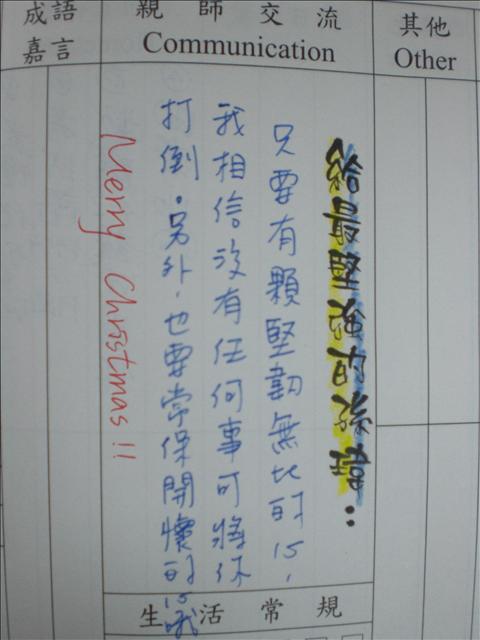 成語
嘉言
親師交流
Communication
其他
Other
給最堅強的
只要有顆堅韌無比的心，
我相信沒有任何事可將你
打倒。另外，也要常保開懷的心哦
Merry Christmas!!
生活常規